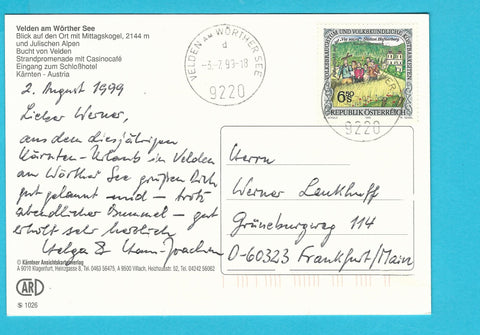 Velden am Wörther See
Blick auf den Ort mit Mittagskogel, 2144 m
und Julischen Alpen
Bucht von Velden
Strandpromenade mit Casinocafé
Eingang zum Schloßhotel
Kärnten - Austria
2. August 1999
Lieber Werner,
aus dem diesjährigen
Kärnten-Urlaub in Velden
am Wörther See grüßen Dich
gut gelaunt und - trotz
abendlicher Bummel - gut
erholt sehr herzlich
Helga & Hans-Joachim
© Kärntner Ansichtskartenverlag
A 9010 Klagenfurt, Heinzgasse 8, Tel. 0463 56475, A 9500 Villach, Tel. 04242 56062
ARI
S 1026
VELDEN AM WÖRTHER SEE
d
9220
VOLKSBRAUCHTUM UND VOLKSKUNDLICHE KOSTBARKEITEN
6.50
S
REPUBLIK ÖSTERREICH
9220
Herrn
Werner
Grüneburgweg 114
D-60323 Frankfurt/Main